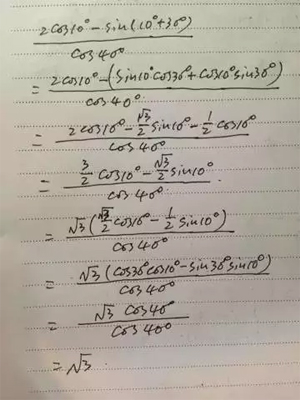 (2cos10° - sin(10°+30°))/cos40°
= (2cos10° - (sin10°cos30° + cos10°sin30°))/cos40°
= (2cos10° - √3/2 sin10° - 1/2 cos10°)/cos40°
= (3/2 cos10° - √3/2 sin10°)/cos40°
= √3(√3/2 cos10° - 1/2 sin10°)/cos40°
= √3(cos30°cos10° - sin30°sin10°)/cos40°
= √3 cos40°/cos40°
= √3